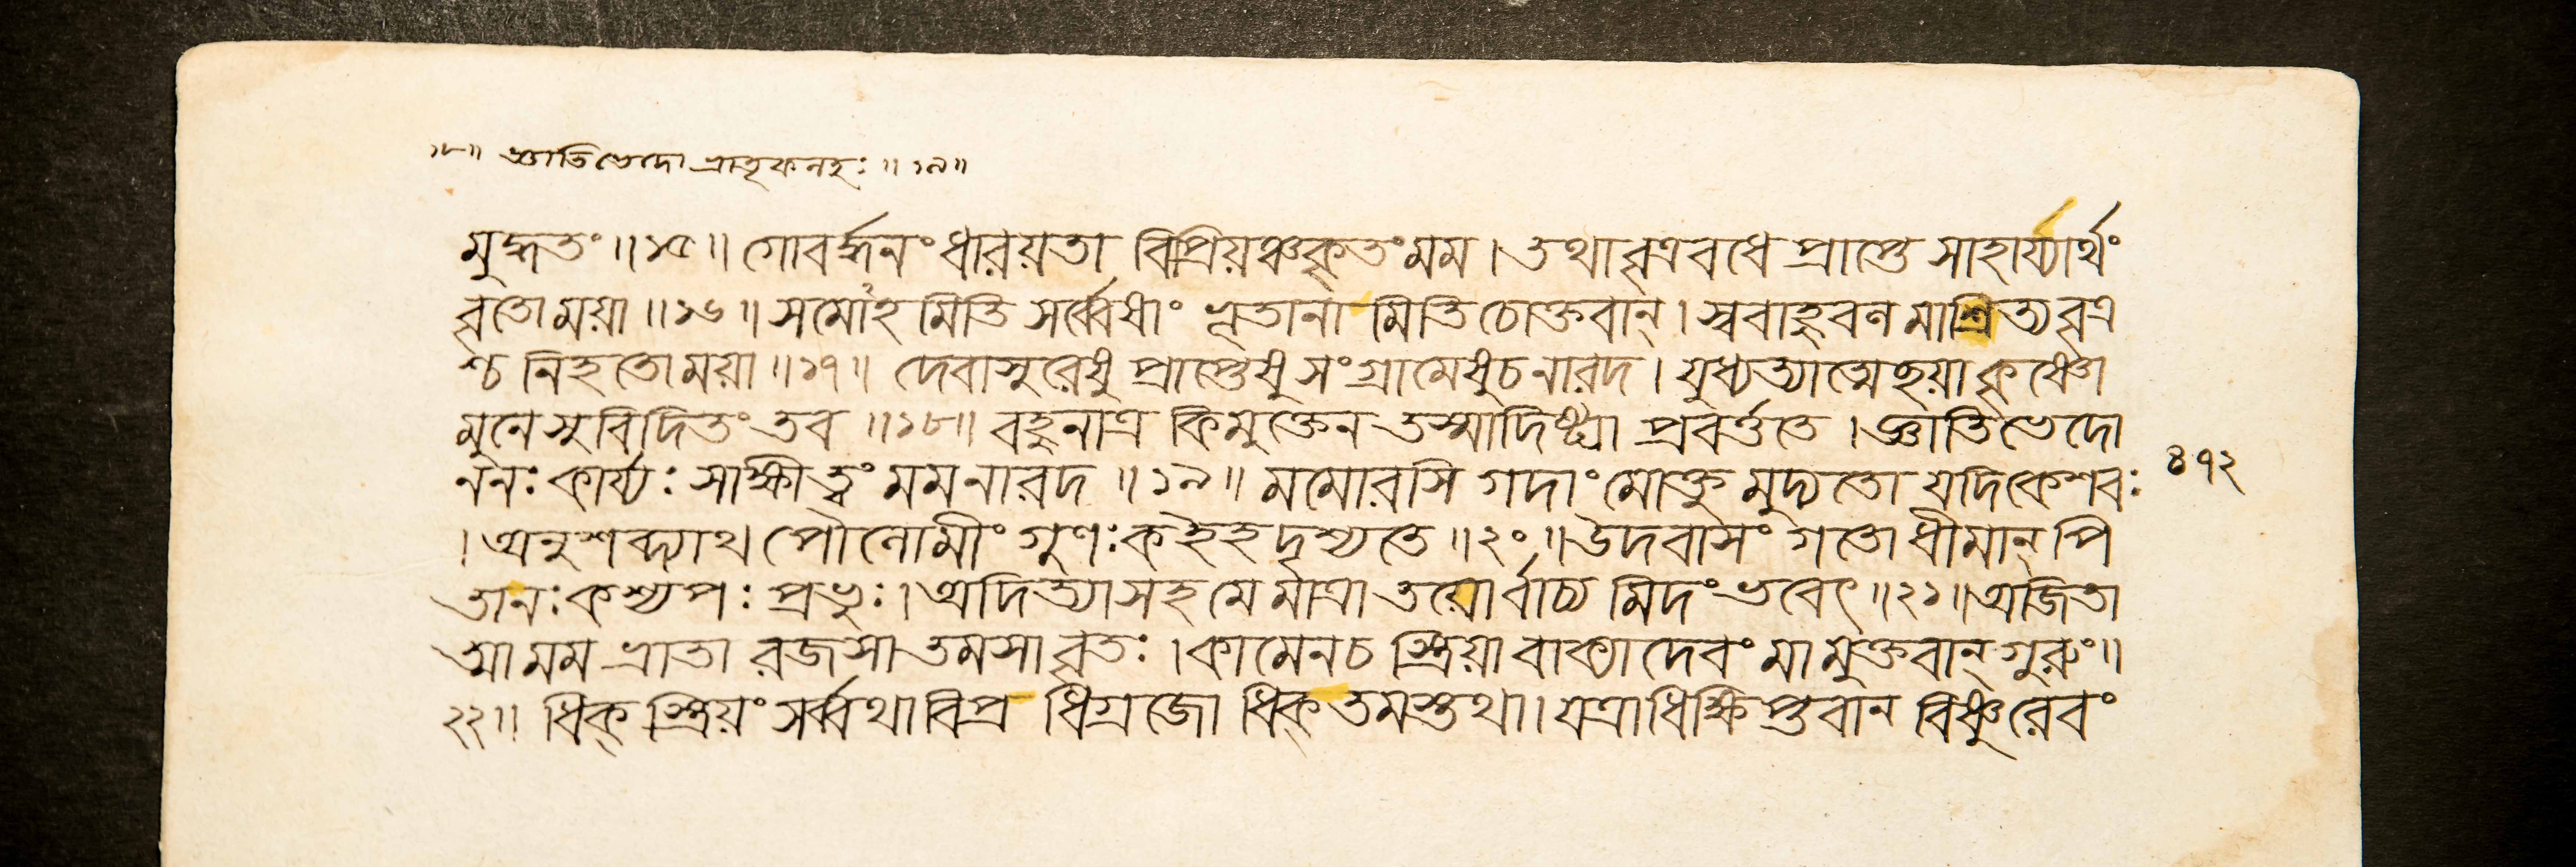 ১৮॥ জ্ঞাতিভেদো ভ্রাতৃকলহঃ ॥ ১৯॥
মুদ্ধৃতং ॥১৫॥ গোবর্দ্ধনং ধারয়তা বিপ্রিয়ঞ্চ কৃতং মম । তথা বৃত্রবধে প্রাপ্তে সাহায্যার্থং
বৃতো ময়া ॥১৬॥ সমোঽহমিতি সর্ব্বেষাং ভূতানামিতি চোক্তবান্ । স্ববাহুবলমাশ্রিত্য বৃত্র
শ্চ নিহতো ময়া ॥১৭॥ দেবাসুরেষু প্রাপ্তেষু সংগ্রামেষু চ নারদ । যুধ্যত্যাত্মেচ্ছয়া কৃষ্ণো
মুনে সুবিদিতং তব ॥১৮॥ বহুনাত্র কিমুক্তেন তস্মাদিষ্ট্যা প্রবর্ত্ততে । জ্ঞাতিভেদো
ন নঃ কার্য্যঃ সাক্ষী ত্বং মম নারদ ॥১৯॥ মমোরসি গদাং মোক্তুমুদ্যতো যদি কেশবঃ
৪৭২
। অনুশব্দ্যাথ পৌলোমীং গুণঃ ক ইহ দৃশ্যতে ॥২০॥ উদবাসং গতো ধীমান্ পি
তা নঃ কশ্যপঃ প্রভুঃ । অদিত্যা সহ মে মাত্রা তয়োর্বাচ্যমিদং ভবেৎ ॥২১॥ অজিতা
ত্মা মম ভ্রাতা রজসা তমসা বৃতঃ । কামেন চ স্ত্রিয়া বাক্যাদেবং মামুক্তবান্ গুরুং ॥
২২॥ ধিক্ স্ত্রিয়ং সর্ব্বথা বিপ্র ধিগ্রজো ধিক্ তমস্তথা । যত্রাধিক্ষিপ্তবান বিষ্ণুরেবং